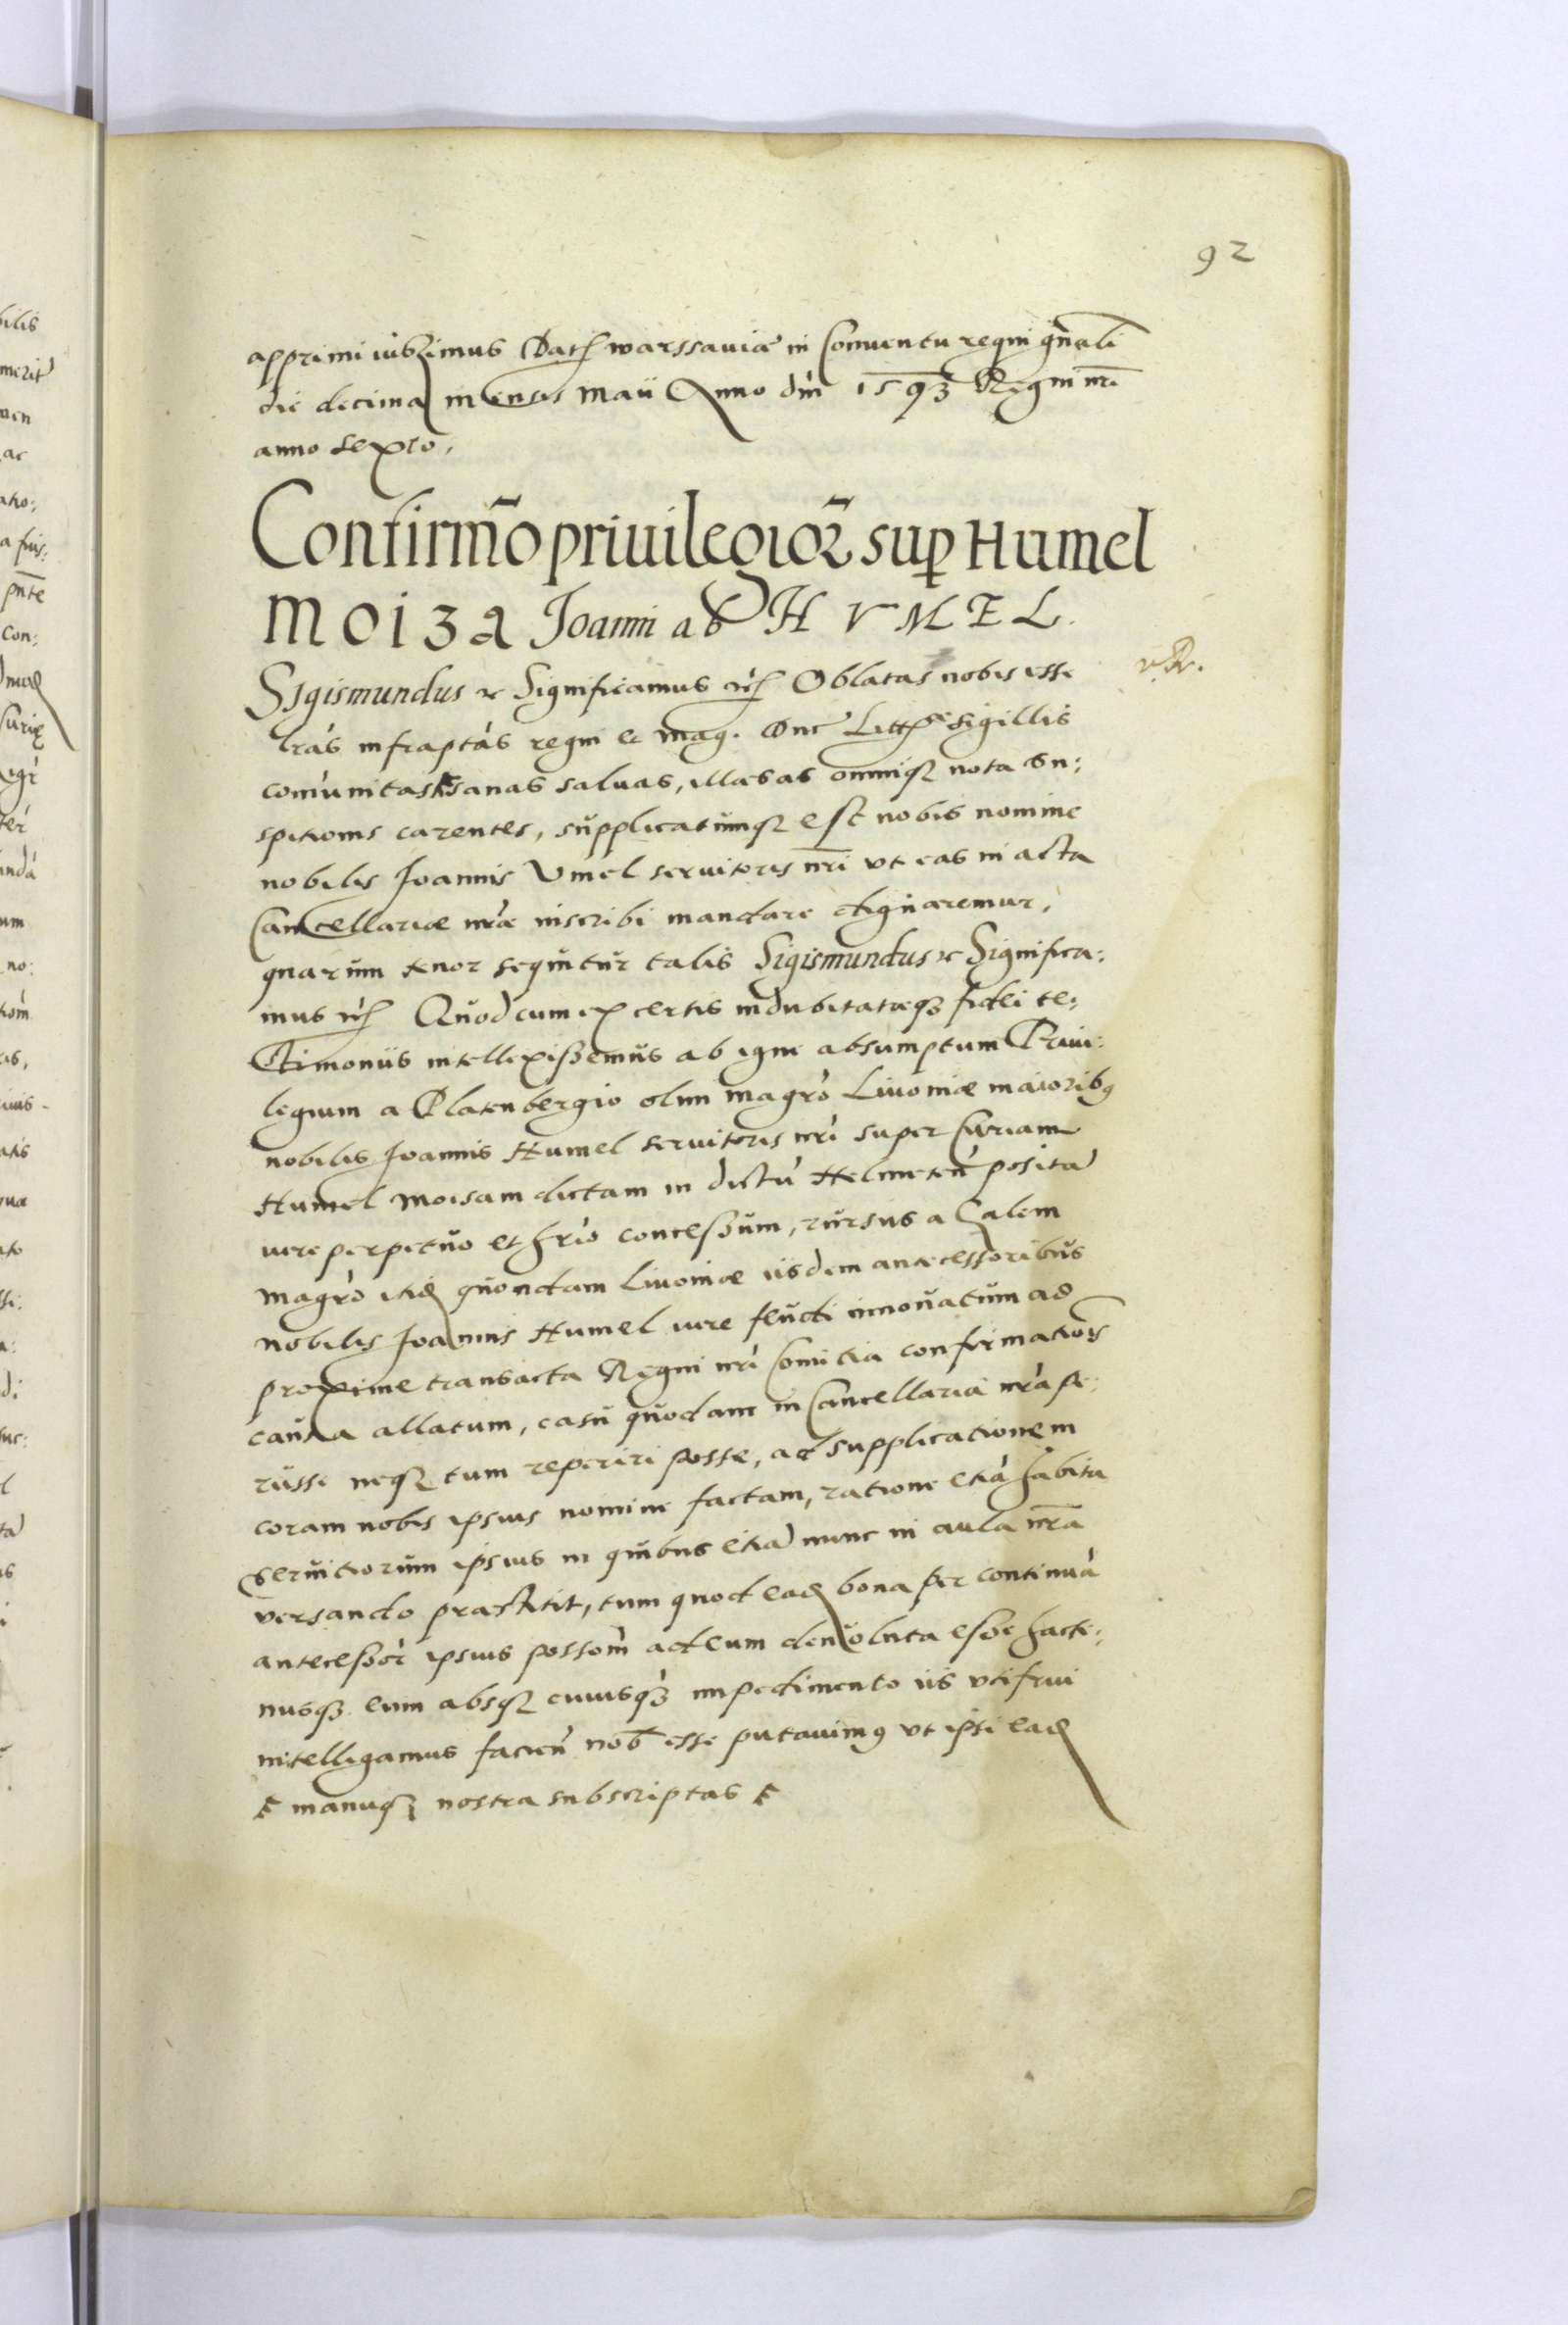 92
apprimi iussimus Dat warssaviæ in Conventu regni gn̄ali
die decima mensis Maii Anno dni 1593 Regni nri
anno sexto.
Confirmõ priuilegior̃ sup Humel
moiza Joanni ab HVMEL.
Sigismundus &c Significamus Oblatas nobis esse
lrás infraptás regni et mag. Duc Litt sigillis
comúnitas ⁋ sanas saluas, illæsas omniq; nota sn:
spitionis carentes, supplicatumq; est nobis nomine
nobilis Joannis Vmel servitoris nri vt eas in acta
Cancellariæ nræ inscribi mandare dignaremur,
quarum tenor sequitur talis Sigismundus &c Significa:
mus Quod cum ex certis indubitatæq; fidei te:
stimoniis intellexissemus ab igne absumptum Priui:
legium a Platenbergio olim magrò Livoniæ maiorib9
nobilis Joannis Humel servitoris nri super Curiam
Humel Moisam dictam in dictú Helmeten positã
iure perpetuo et hrió concessum, rursus a Galem
magrò itid quondam Livoniæ iisdem anæcessoribus
nobilis Joannis Humel iure feudi innouatum ad
proxime transacta Regni nri Comitia confirmationis
causa allatum, casu quodam in Cancellaria nrá pe:
riisse neq; tum reperiri posse, ad supplicationem
coram nobis ipsius nomine factam, ratione etiá habita
servitiorum ipsius in quibus etiã nunc in aula nrã
versando præstitit, tum quod ead bona per continuá
antecessor ipsius possom ad eum deuoluta esse hacte:
nusq; eum absq; cuiusq; impedimento iis vti frui
intelligamus facien nob esse putauim9 vt ipsi ead
⁋ manuq; nostra subscriptas ⁋